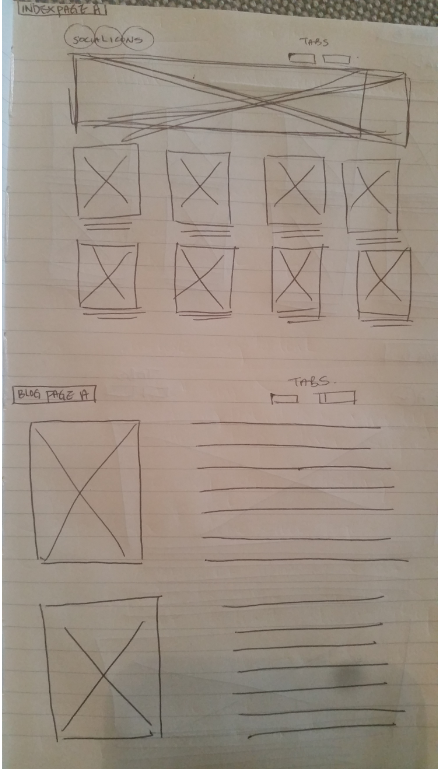 INDEX PAGE A
SOCIAL ICONS
TABS
BLOG PAGE A
TABS.